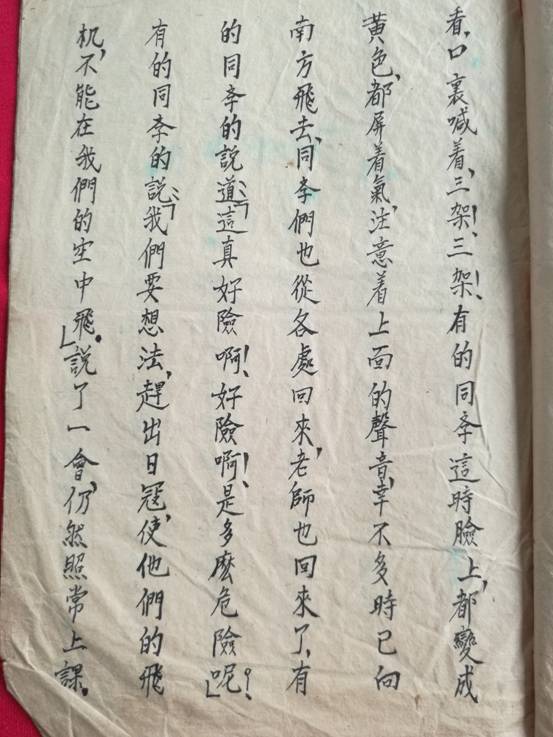 看,口裏喊着,三架!三架!有的同李這時臉上,都變成
黄色,都屏着氣,注意着上面的聲音,幸不多時已向
南方飛去,同李們也從各處回來,老師也回來了,有
的同李的說道:「這真好險啊!好險啊!是多麽危險呢!」
有的同李的說:「我們要想法,趕出日寇,使他們的飛
机,不能在我們的空中飛。」說了一會,仍然照常上課。